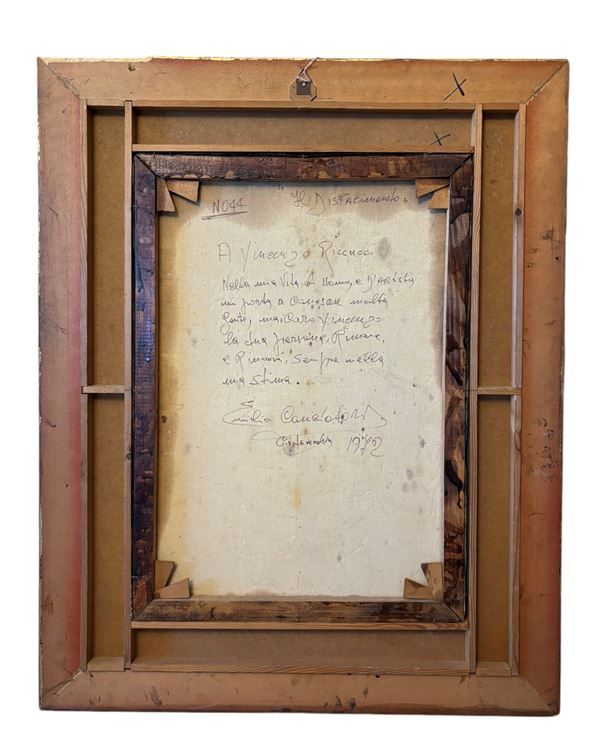 N044 "Il Disfacimento"
A Vincenzo
Nella mia Vita di Homo, e D'Artista
mi porta a conoscere molta
gente, ma, Caro Vincenzo
la tua persona, Rimane,
e Rimarrà, sempre nella
mia stima.
Emilio
1972